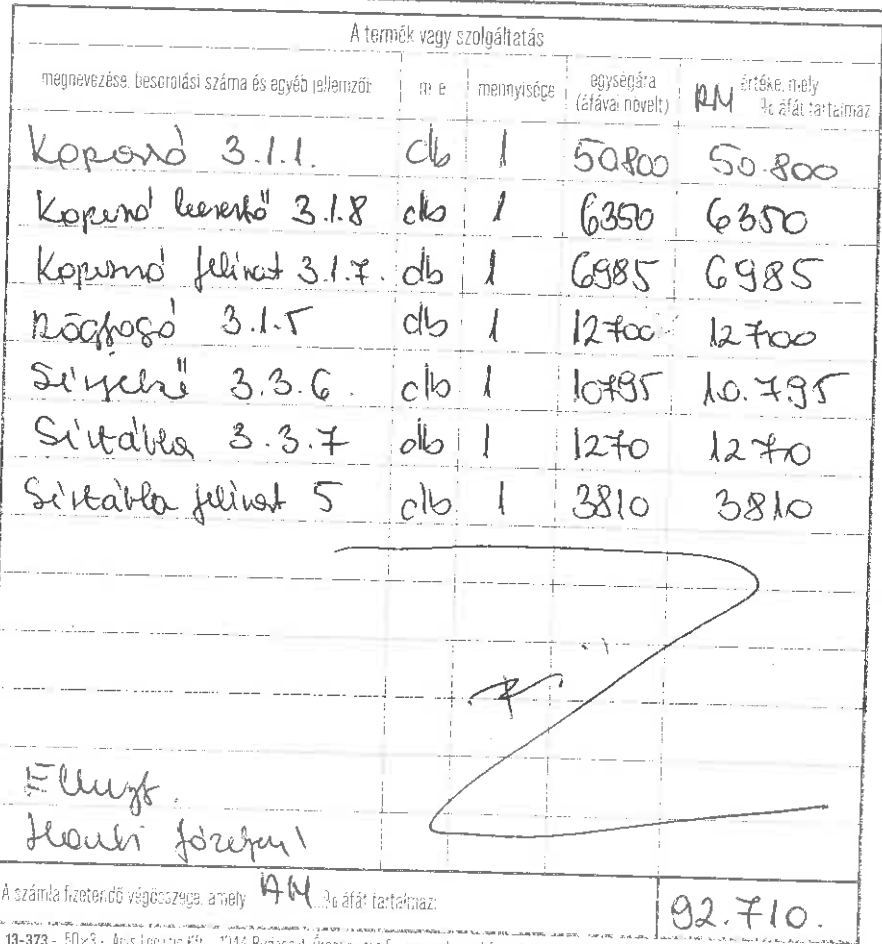 A termék vagy szolgáltatás
megnevezése, besorolási száma és egyéb jellemzői: m e mennyisége egységára (áfával növelt) értéke, mely % áfát tartalmaz
Koporsó 3.1.1. db 1 50800 50.800
Koporsó kereszt 3.1.8 db 1 6350 6350
Koporsó felirat 3.1.7. db 1 6985 6985
Rögfogó 3.1.5 db 1 12700 12700
Sírjelző 3.3.6. db 1 10795 10.795
Sírtábla 3.3.7 db 1 1270 1270
Sírtábla felirat 5 db 1 3810 3810
A számla fizetendő végösszege, amely % áfát tartalmaz: 92.710.
13-373 - 50x3 -